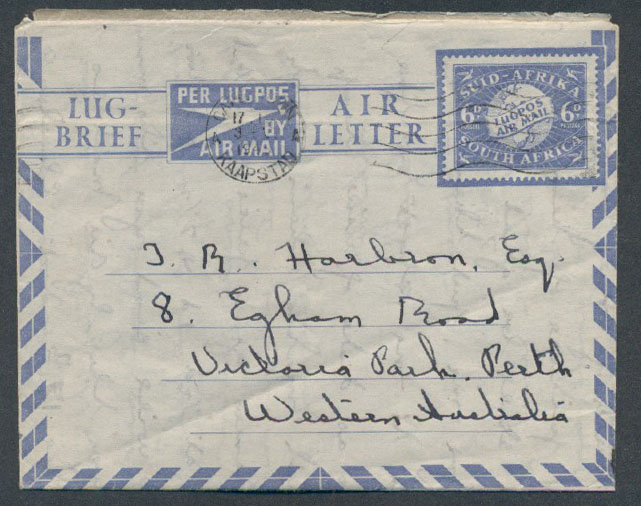 LUG-
BRIEF
PER LUGPOS
BY
AIR MAIL
AIR
LETTER
SUID-AFRIKA
6D 6D
LUGPOS
AIR MAIL
POSTAGE
SOUTH AFRICA
17
KAAPSTAD
J. R. Harbron, Esq.
8. Egham Road
Victoria Park. Perth
Western Australia